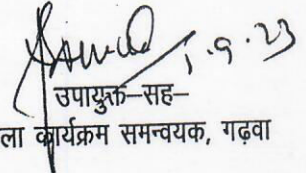 1.9.23
उपायुक्त–सह–
ला कार्यक्रम समन्वयक, गढ़वा